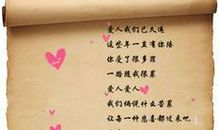 爱人我们已久违
这些年一直有你陪
你受了很多罪
一路随我很累
爱人爱人
我们俩说什么苦累
让每一种悲喜都过来吧